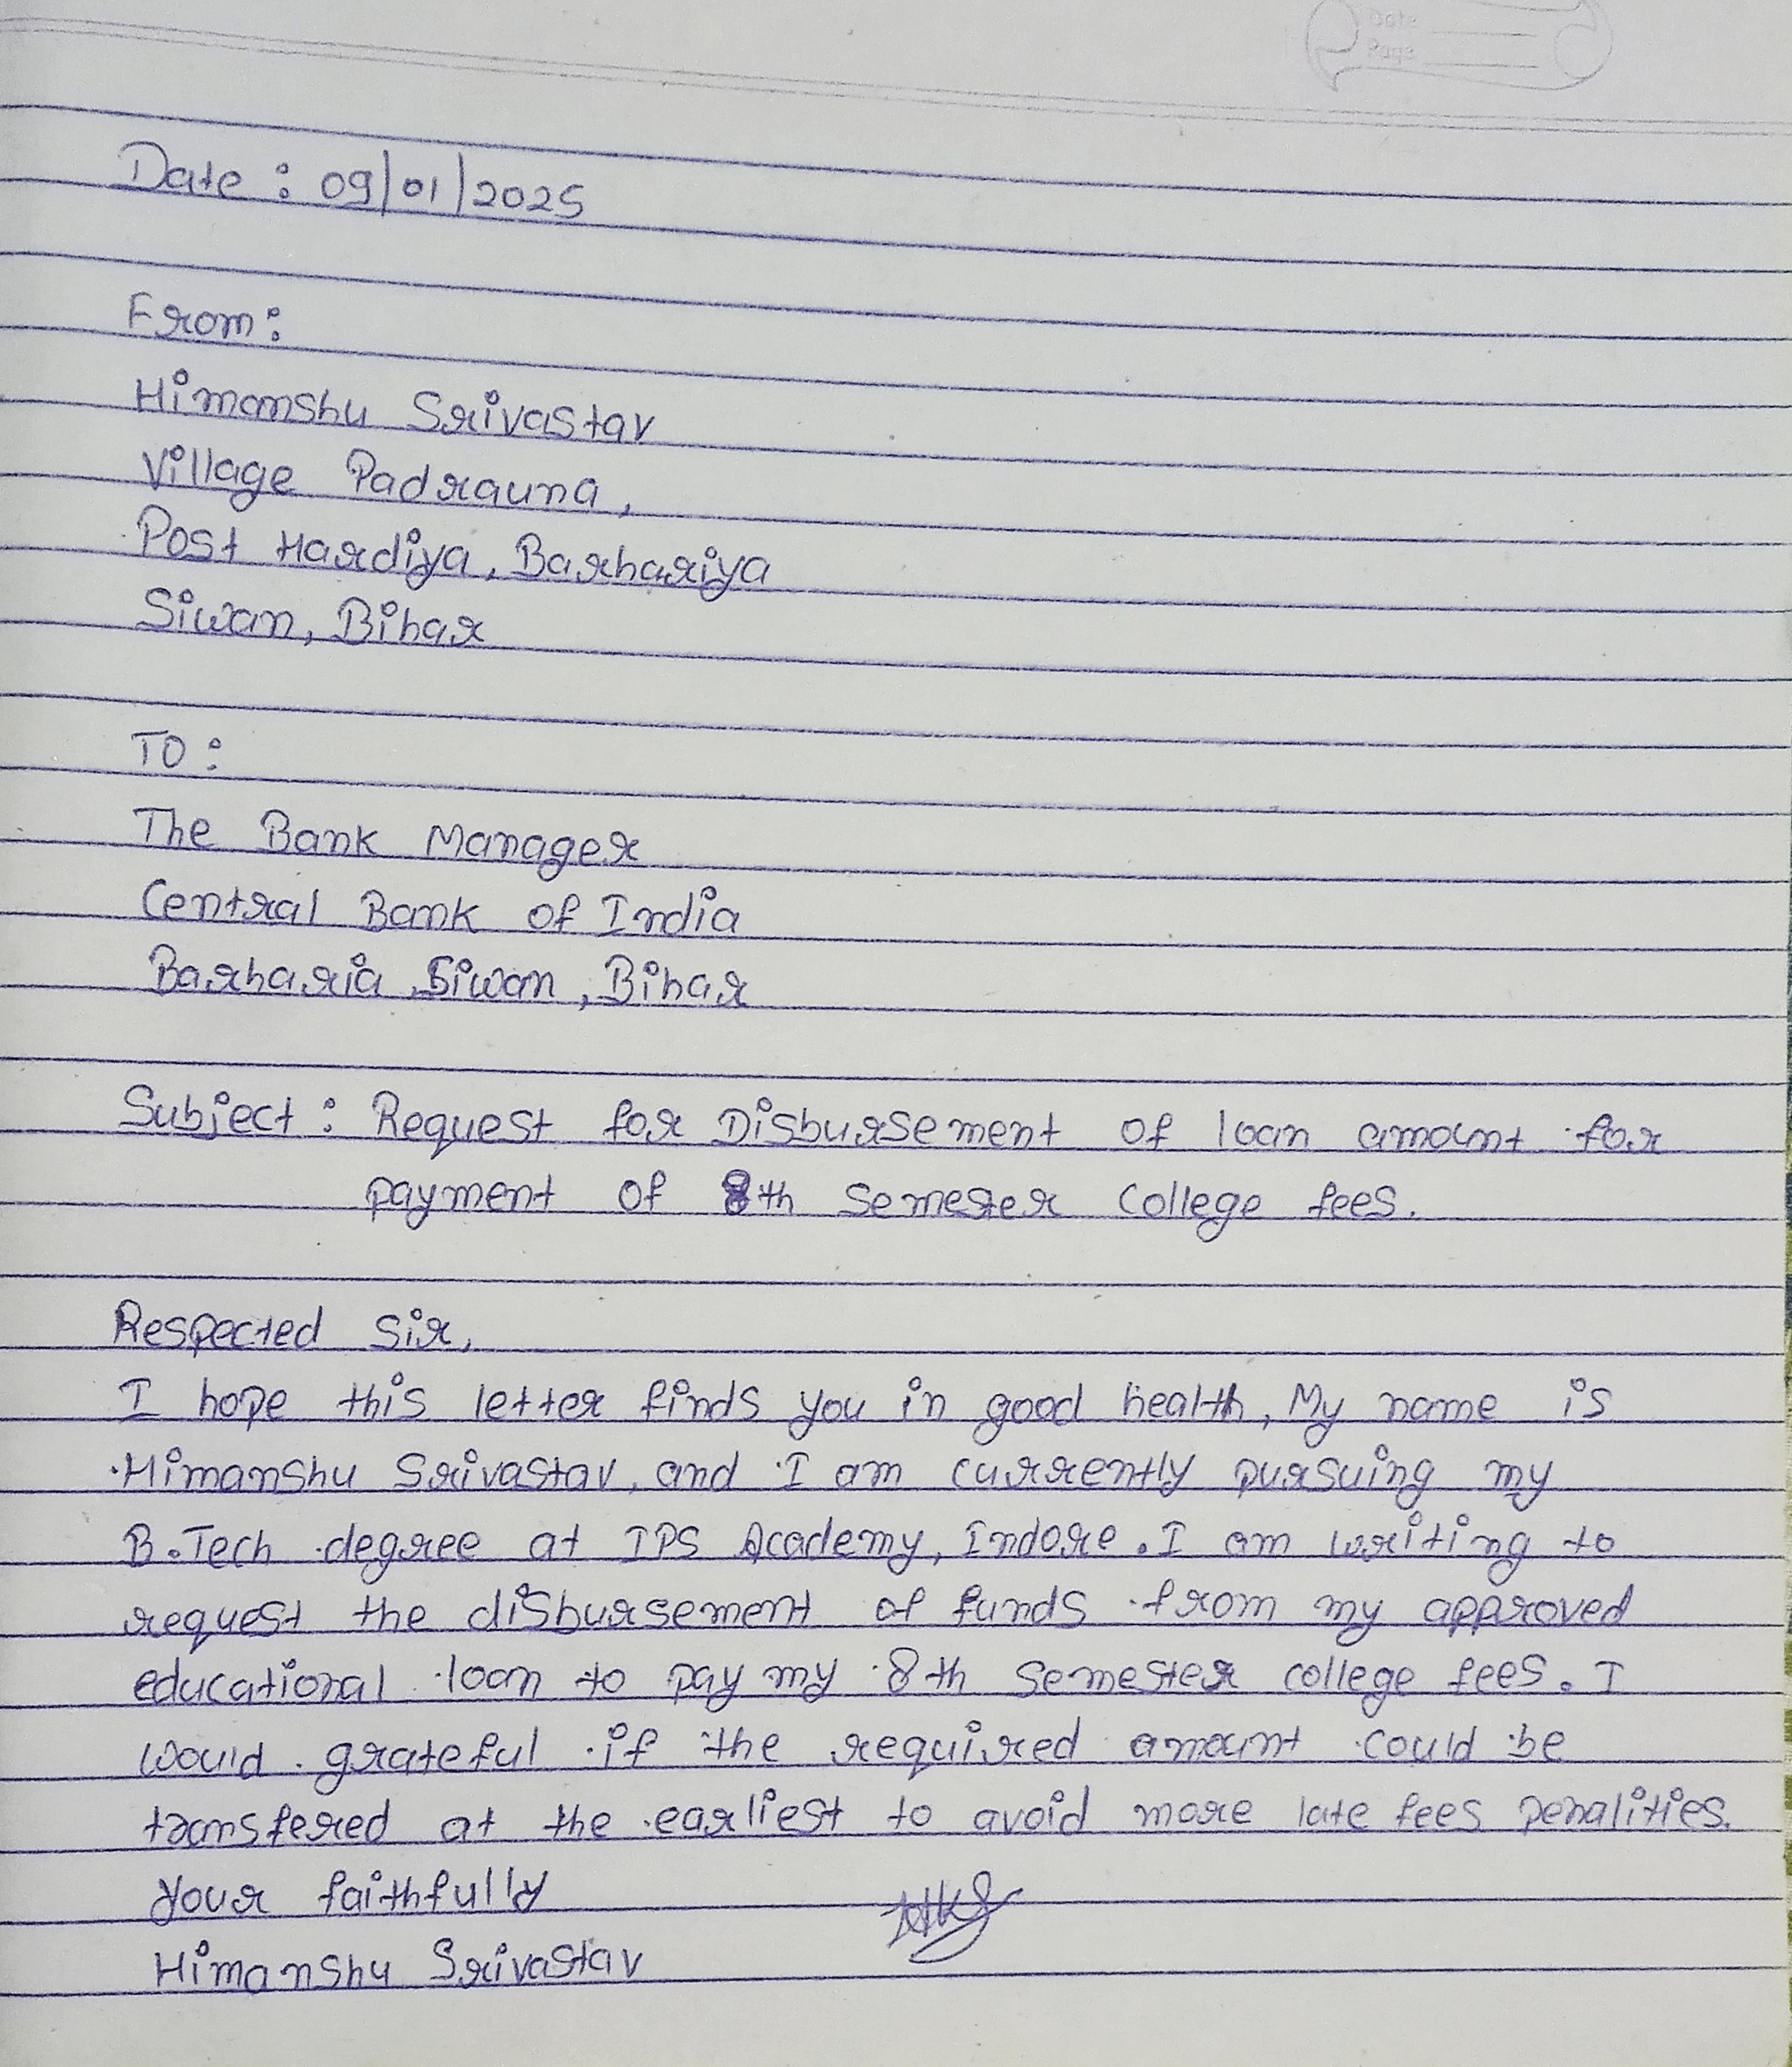 Date
Page
Date : 09/01/2025
From :
Himanshu Srivastav
Village Padrauna,
Post Hardiya, Barhariya
Siwan, Bihar
TO :
The Bank Manager
Central Bank of India
Barharia, Siwan, Bihar
Subject : Request for Disbursement of loan amount for
payment of 8th semester college fees.
Respected Sir,
I hope this letter finds you in good health, My name is
Himanshu Srivastav, and I am currently pursuing my
B.Tech degree at IPS Academy, Indore. I am writing to
request the disbursement of funds from my approved
educational loan to pay my 8th semester college fees. I
would grateful if the required amount could be
transfered at the earliest to avoid more late fees penalities.
your faithfully
Himanshu Srivastav